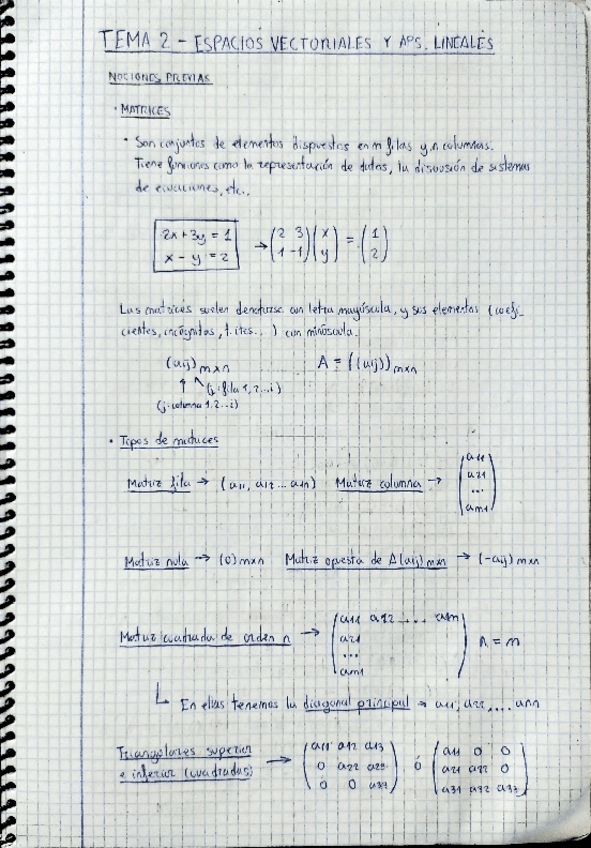 TEMA 2 - ESPACIOS VECTORIALES Y APS. LINEALES
NOCIONES PREVIAS
· MATRICES
· Son conjuntos de elementos dispuestos en m filas y n columnas.
Tiene funciones como la representación de datos, la discusión de sistemas
de ecuaciones, etc..
2x + 3y = 1
x - y = 2
→ (2 3 / 1 -1) (x / y) = (1 / 2)
Las matrices suelen denotarse con letra mayúscula, y sus elementos (coefi-
cientes, incógnitas, t. ites...) con minúscula.
(aij) mxn A = ((aij)) mxn
(i: fila 1, 2...i)
(j: columna 1, 2...i)
· Tipos de matrices
Matriz fila → (a11, a12 ... a1n) Matriz columna → (a11 / a21 / ... / am1)
Matriz nula → (0) mxn Matriz opuesta de A(aij) mxn → (-aij) mxn
Matriz cuadrada de orden n → (a11 a12 ... a1n / a21 / ... / am1) n = m
En ellas tenemos la diagonal principal → a11, a22, ... ann
Triangulares superior
e inferior (cuadradas)
→ (a11 a12 a13 / 0 a22 a23 / 0 0 a33) ó (a11 0 0 / a21 a22 0 / a31 a32 a33)